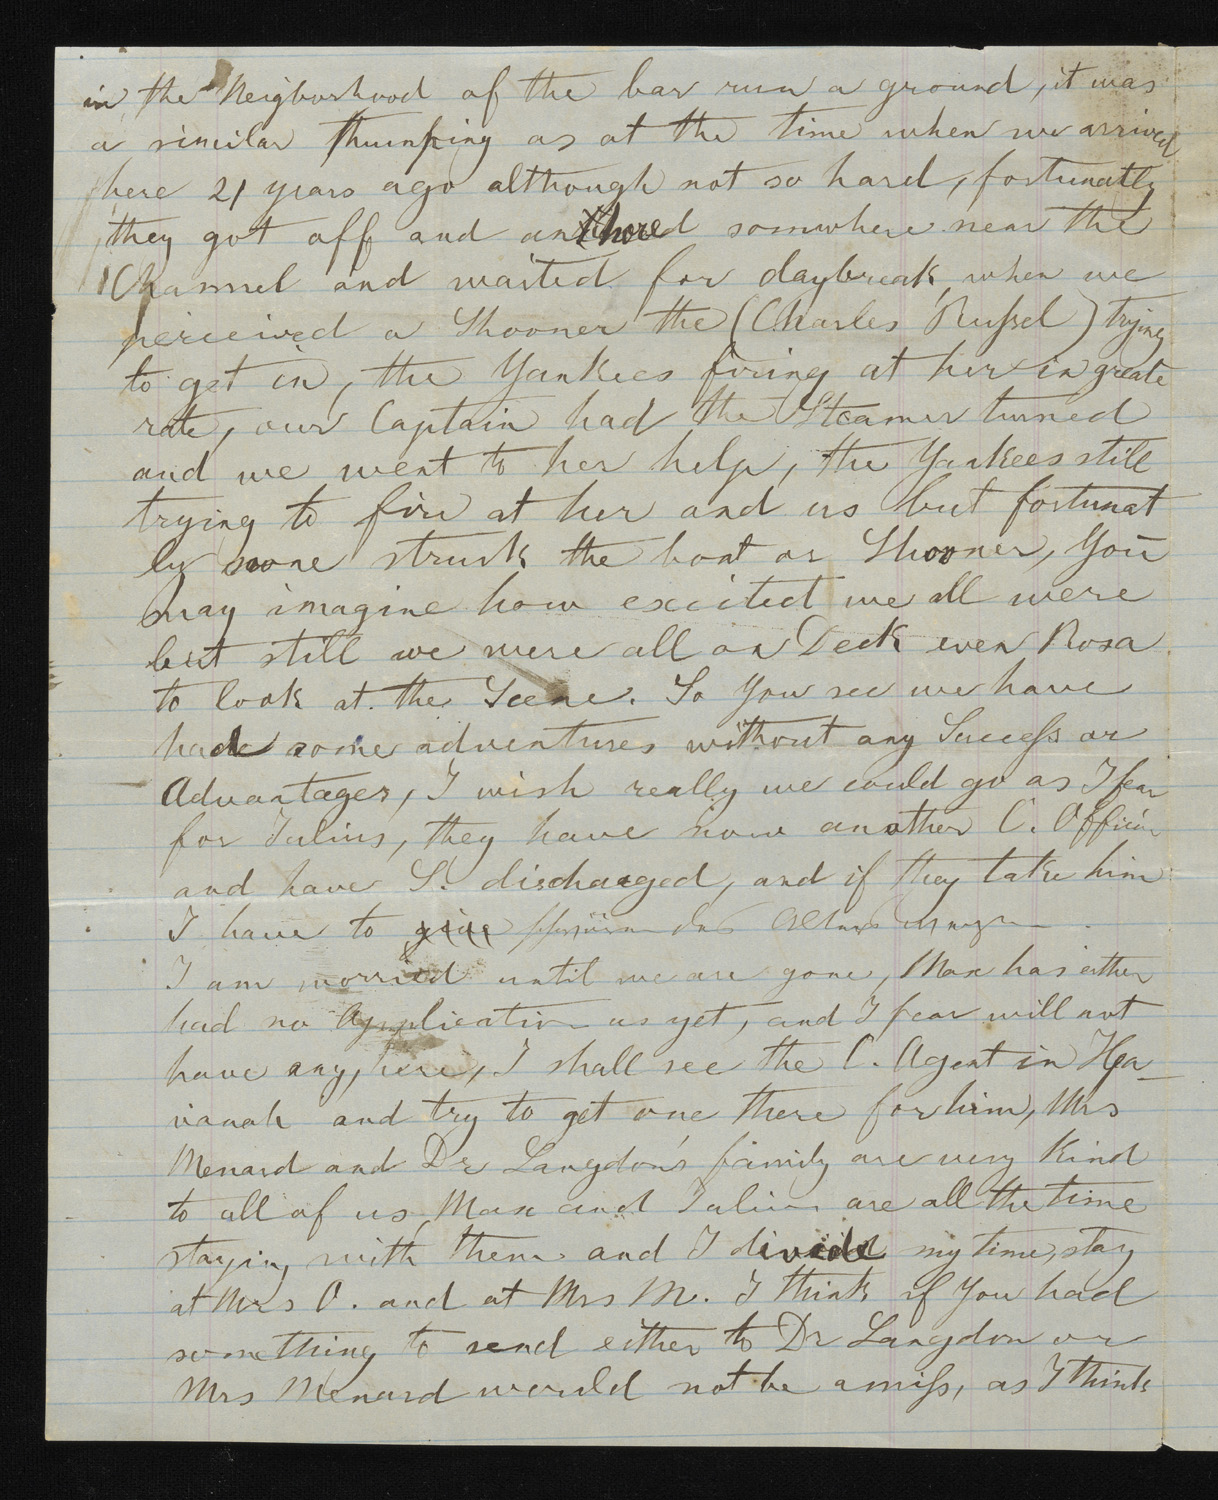 in the Neigborhood of the bar run a ground, it was
a similar thumping as at the time when we arrived
here 21 years ago although not so hard, fortunatly
they got off and anchored somwhere near the
Channel and waited for daybreak, when we
perceived a Shooner the (Charles Rußel) trying
to get in, the Yankees firing at her in greate
rate, our Captain had the Steamer turned
and we went to her help, the Yankees still
trying to fire at her and us but fortunat
ly none struk the boat or Shooner, You
may imagine how excited we all were
but still we were all on Deck even Rosa
to look at the Scene. So You see we have
had some adventures without any Succeß or
Advantages, I wish really we could go as I fear
for Julius, they have now another C. Officir
and have S. discharged, and if they take him
I have to
I am worried until we are gone, Max has either
had no Application as yet, and I fear will not
have any, here, I shall see the C. Agent in Ha-
vanah and try to get one there for him, Mrs
Menard and Dr Langdon's family are very Kind
to all of us, Max and Julius are all the time
staying with them and I divide my time, stay
at Mrs O. and at Mrs M. I think if You had
something to send either to Dr Langdon or
Mrs Menard would not be amiß, as I think